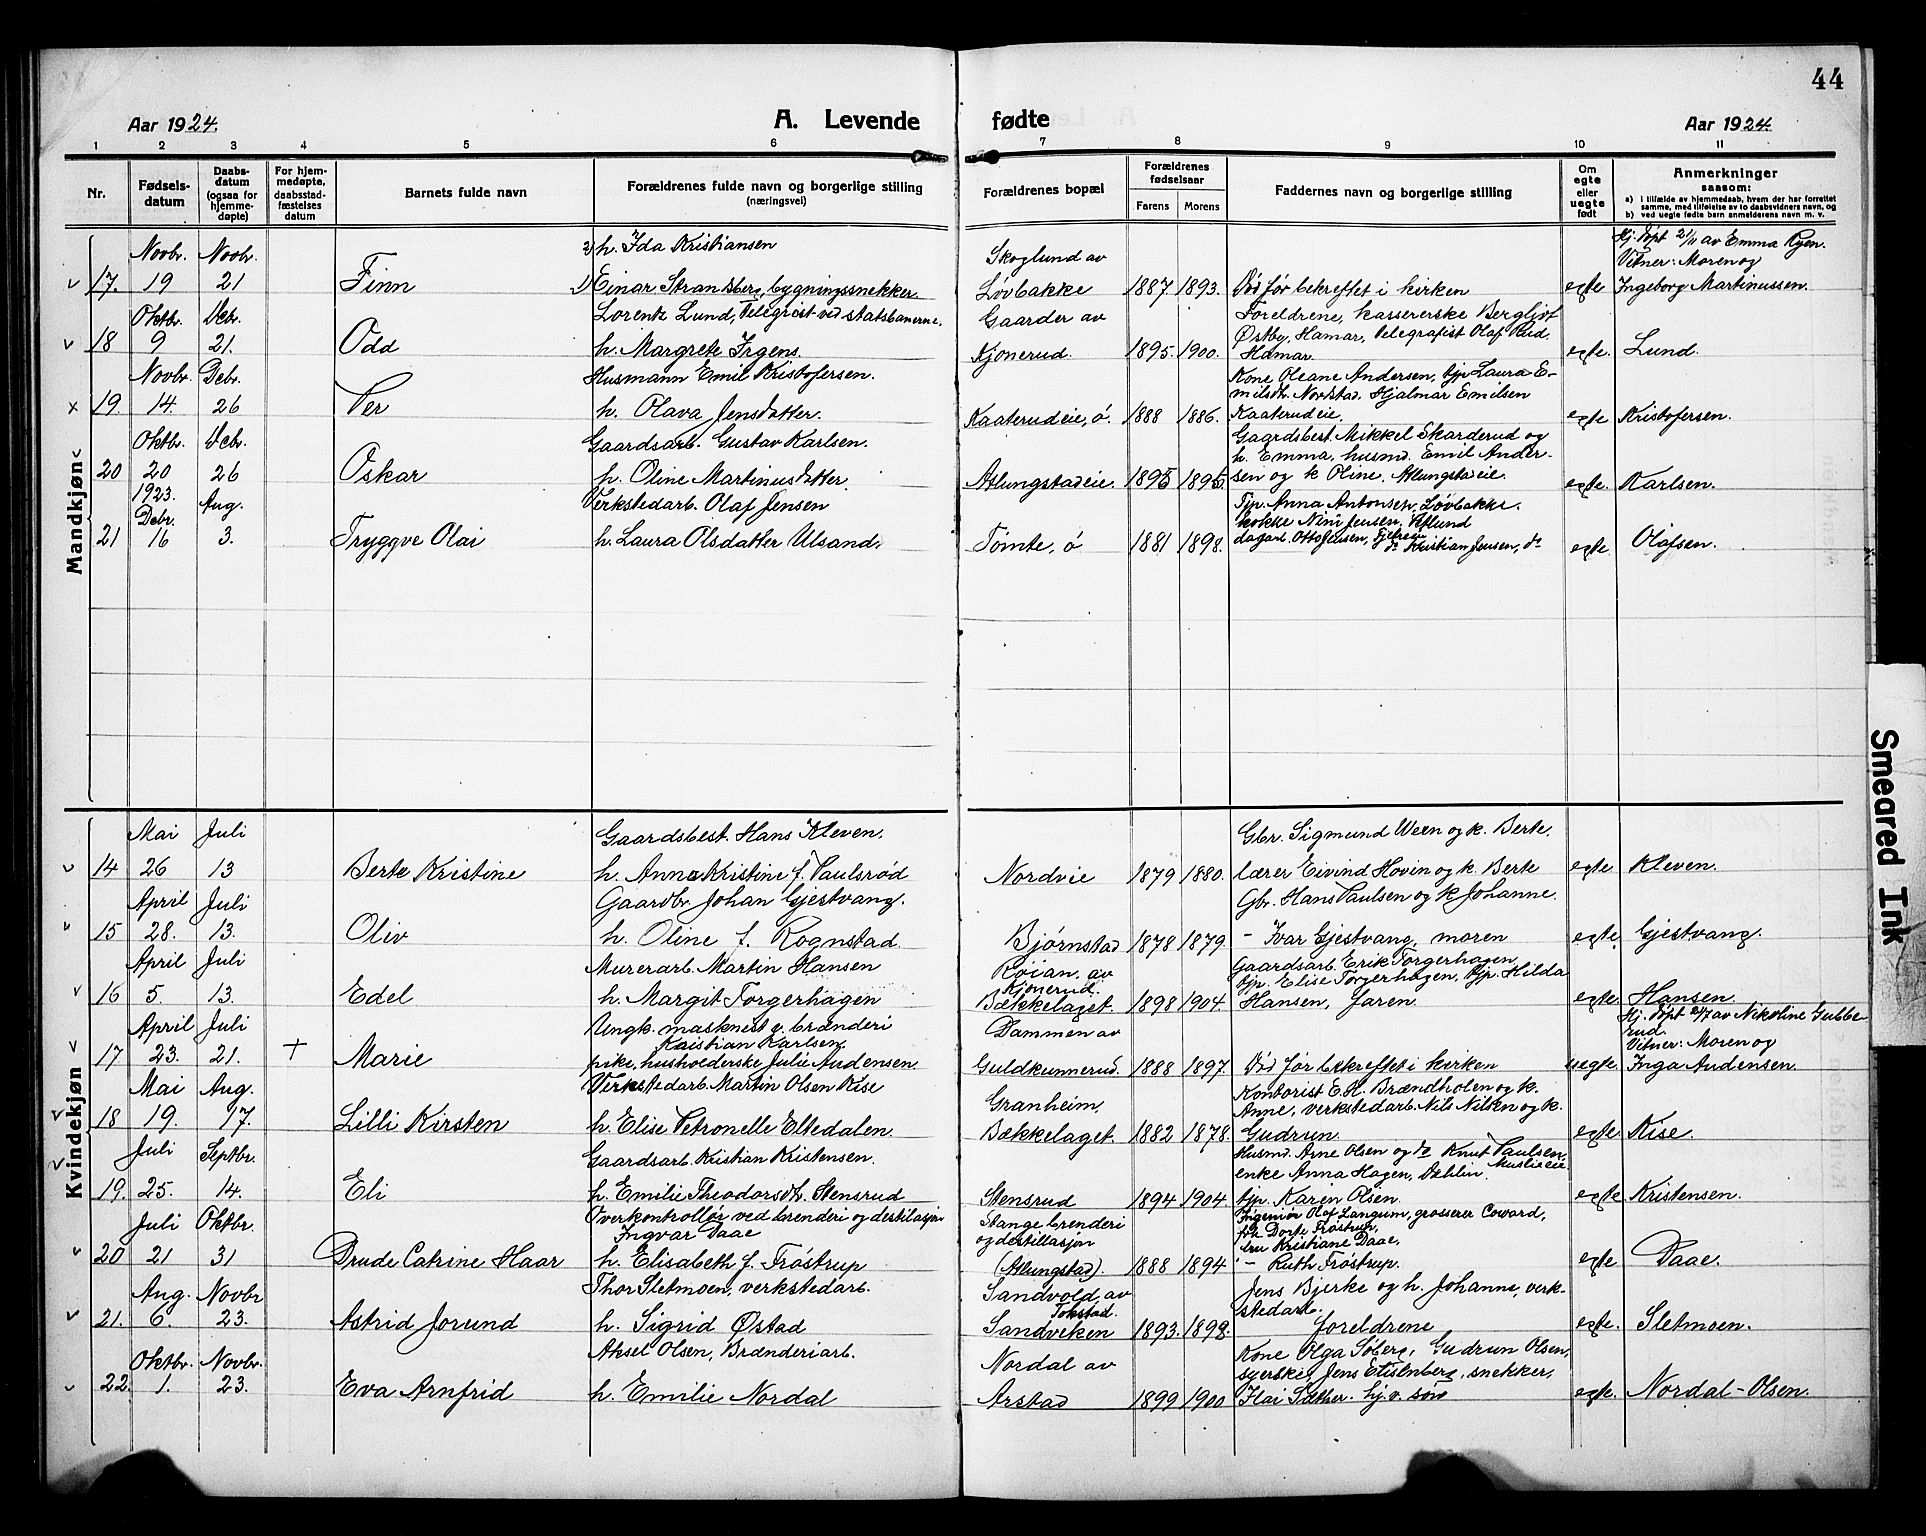 44
Aar 1924.
A. Levende fødte
Aar 1924.
1 2 3 4 5 6 7 8 9 10 11
Nr.
Fødsels-
datum
Daabs-
datum
(ogsaa for
hjemme-
døpte)
For hjem-
medøpte,
daabsstad-
fæstelses
datum
Barnets fulde navn
Forældrenes fulde navn og borgerlige stilling
(næringsvei)
Forældrenes bopæl
Forældrenes
fødselsaar
Farens Morens
Faddernes navn og borgerlige stilling
Om
egte
eller
uegte
født
Anmerkninger
saasom:
a) i tilfælde av hjemmedaab, hvem der har forrettet
samme, med tilføielse av to daabsvidners navn, og
b) ved uegte fødte barn anmelderens navn m. v.
Mandkjøn
Novbr. Novbr.
17. 19 21
Finn
2) h. Ida Kristiansen
1) Einar Strandberg, bygningssnekker
Skoglund av
Løvbakke
1887 1893.
Død før bekreftet i kirken
egte
Hj. døpt 21/11 av Emma Ryen.
Vitner: Moren og
Ingeborg Martinussen.
Oktbr. Debr.
18 9 21.
Odd
Lorentz Lund, Telegrist ved statsbanerne.
h. Margrete Irgens.
Gaarder av
Kjonerud.
1895. 1900.
Foreldrene, kassererske Bergljot
Østby, Hamar, telegrafist Olaf Rud.
Hamar.
egte.
Lund.
Novbr. Debr.
19. 14. 26
Per
Husmann Emil Kristofersen.
h. Olava Jensdatter.
Kaaterudeie, ø.
1888 1886.
Kone Oleane Andersen, tjp Laura E-
milsdt. Nordstad, Hjalmar Emilsen
Kaaterudeie.
egte
Kristofersen.
Oktbr. Debr.
20 20 26
Oskar
Gaardsarb. Gustav Karlsen.
h. Oline Martinusdatter.
Atlungstadeie.
1895 1895.
Gaardsbest. Mikkel Skarderud og
h. Emma, husmd. Emil Ander-
sen og k Oline. Atlungstadeie
egte.
Karlsen.
1923.
Debr. Aug.
21 16 3.
Tryggve Olai
Verkstedarb. Olaf Jensen
h. Laura Olsdatter Ulsand.
Tomte, ø
1881 1898.
Tjp. Anna Antonsen, Løvbakke.
kokke Nini Jensen,
dagarb. Otto Jensen,
do Kristian Jensen, do
egte.
Olafsen.
Kvindekjøn
Mai Juli
14 26 13
Berte Kristine
Gaardsbest. Hans Kleven.
h. Anna Kristine f. Paulsrød
Nordvie
1879 1880.
Gbr. Sigmund Ween og k. Berte.
lærer Eivind Hovin og k. Berte
egte
Kleven.
April Juli
15 28. 13.
Oliv
Gaardbr. Johan Gjestvang.
h. Oline f. Rognstad
Bjørnstad
1878 1879
Gbr. Hans Paulsen og k Johanne.
- Ivar Gjestvang, moren
egte.
Gjestvang.
April Juli
16 5. 13.
Edel
Murerarb. Martin Hansen
h. Margit Torgerhagen
Roian. av
Kjonerud.
Bækkelaget.
1898 1904.
Gaardsarb. Erik Torgerhagen,
tjp. Elise Torgerhagen, tjp. Hilda
Hansen, faren
egte.
Hansen.
April Juli
17 23. 21. +
Marie
Ungk. maskinest v. brænderi
Kristian Karlsen.
pike, husholderske Julie Audensen
Dammen av
Guldkunnerud.
1888 1897.
Død før bekreftet i kirken
uegte.
Hj. døpt 21/7 av Nikoline Gubbe-
rud.
Vitner: Moren og
Inga Audensen.
Mai Aug.
18 19. 17.
Lilli Kirsten
Verkstedarb. Martin Olsen Kise
h. Elise Petronelle Eltedalen.
Granheim.
Bækkelaget.
1882 1878.
Kontorist E. H. Brændholen og k.
Anne, verkstedarb. Nils Nilsen og k.
Gudrun
egte.
Kise.
Juli Septbr.
19. 25. 14.
Eli
Gaardsarb. Kristian Kristensen.
h. Emilie Theodorsdt. Stensrud
Stensrud
1894 1904.
Husmd. Arne Olsen og do Knut Paulsen,
enke Anna Hagen, Dahlin Muslieeie.
tjp. Karen Olsen.
egte
Kristensen.
Juli Oktbr.
20 21 31
Drude Catrine Haar
Overkontrollør ved brenderi og destilasjon
Ingvar Daae
h. Elisabeth f. Frøstrup
Stange brenderi
og destillasjon
(Atlungstad).
1888 1894
Ingeniør Olaf Langum, grosserer Coward,
frk Dorte Frøstrup,
fru Kristiane Daae,
- Ruth Frøstrup.
egte
Daae.
Aug. Novbr
21. 6. 23.
Astrid Jorund
Thor Sletmoen, verkstedarb.
h. Sigrid Østad
Sandvold av
Tokstad.
Sandviken
1893. 1898.
Jens Bjerke og h. Johanne, verk-
stedarb.
foreldrene
egte.
Sletmoen.
Oktbr. Novbr.
22. 1. 23.
Eva Arnfrid
Aksel Olsen, Brænderiarb.
h. Emilie Nordal
Nordal av
Arstad
1899 1900
Kone Olga Søberg, Gudrun Olsen,
syerske, Jens Etislenberg, snekker,
Sæther. hj. v. sørv
egte.
Nordal-Olsen.
Smeared Ink